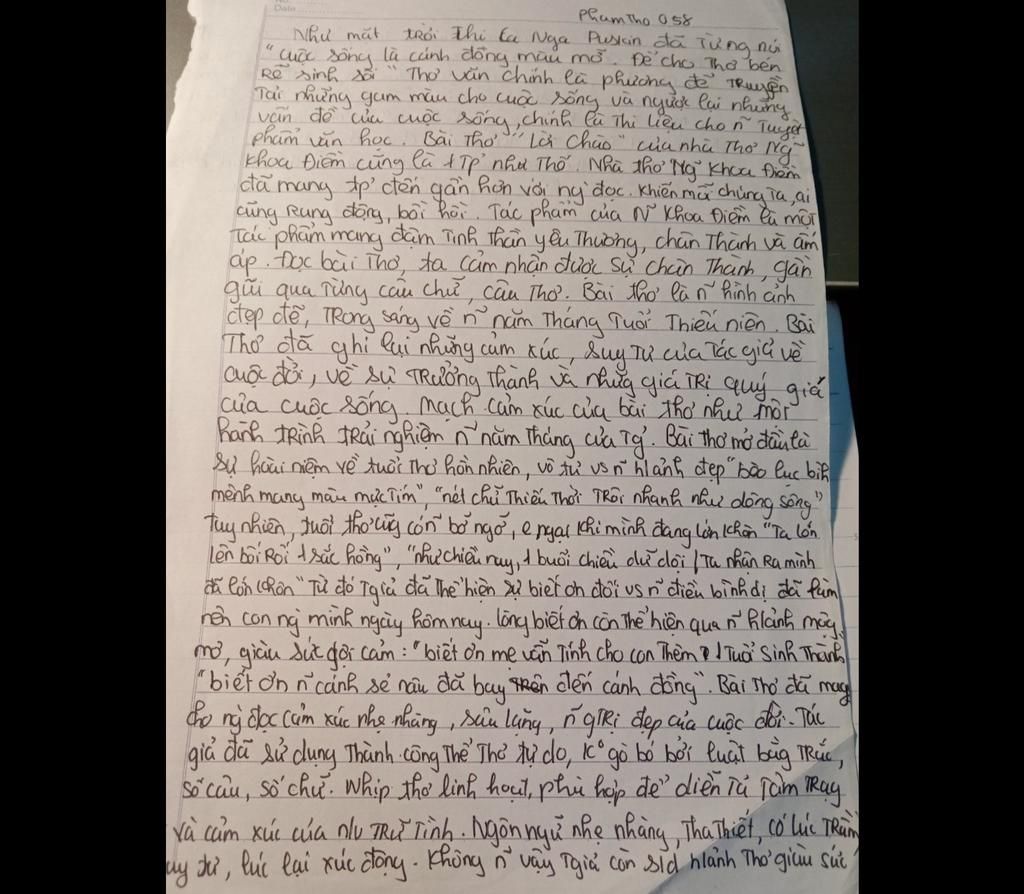 Date
PhamTho 058
Như mặt trời thi ca Nga Puskin đã từng nói
"cuộc sống là cánh đồng màu mỡ. Để cho Thơ bén
Rễ sinh sôi" Thơ văn chính là phương để Truyền
Tải những gam màu cho cuộc sống và ngược lại những
vấn đề của cuộc sống, chính là Thi liệu cho n~ Tuyệt
phẩm văn học. Bài Thơ "Lời Chào" của nhà Thơ Ng~
Khoa Điềm cũng là 1 TP' như Thế. Nhà thơ Ng~ Khoa Điềm
đã mang tp' đến gần hơn với ng' đọc. Khiến mà chúng Ta, ai
cũng Rung động, bồi hồi. Tác phẩm của N~ Khoa Điềm là một
Tác phẩm mang đậm Tinh Thần yêu Thương, chân Thành và ấm
áp. Đọc bài Thơ, ta cảm nhận được sự chân Thành, gần
gũi qua Từng câu chữ, câu Thơ. Bài thơ là n~ hình ảnh
đẹp đẽ, Trong sáng về n~ năm Tháng Tuổi Thiếu niên. Bài
Thơ đã ghi lại những cảm xúc, suy Tư của Tác giả về
cuộc đời, về sự Trưởng Thành và những giá Trị quý giá
của cuộc sống. Mạch cảm xúc của bài thơ như một
hành Trình trải nghiệm n~ năm Tháng của Tg'. Bài Thơ mở đầu là
sự hoài niệm về tuổi Thơ hồn nhiên, vô tư vs n~ h/ảnh đẹp "bèo lục bình
mênh mang màu mực Tím", "nét chữ Thiếu Thời Trôi nhanh như dòng sông"
Tuy nhiên, tuổi thơ cũng có n~ bỡ ngỡ, e ngại khi mình đang lớn khôn "Ta lớn
lên bối Rối 1 sắc hồng", "như chiều nay, 1 buổi chiều dữ dội / Ta nhận Ra mình
đã lớn khôn" Từ đó Tgiả đã Thể hiện sự biết ơn đối vs n~ điều bình dị đã làm
nên con ng' mình ngày hôm nay. Lòng biết ơn còn Thể hiện qua n~ h/ảnh mộng
mơ, giàu sức gợi cảm: "biết ơn mẹ vẫn Tính cho con Thêm 1 Tuổi Sinh Thành
"biết ơn n~ cánh sẻ nâu đã bay đến cánh đồng". Bài Thơ đã mang
cho ng' đọc cảm xúc nhẹ nhàng, sâu lắng, n~ gTrị đẹp của cuộc đời. Tác
giả đã sử dụng Thành công Thể Thơ tự do, k° gò bó bởi luật bằng Trắc,
số câu, số chữ. Nhịp thơ linh hoạt, phù hợp để diễn Tả Tâm Trạng
và cảm xúc của n/v Trữ Tình. Ngôn ngữ nhẹ nhàng, Tha Thiết, có lúc Trầm
uy tư, lúc lại xúc động. Không n~ vậy Tgiả còn s/d h/ảnh Thơ giàu sức